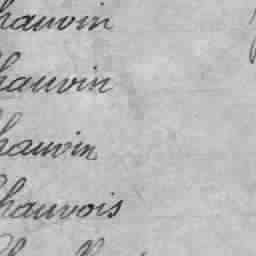 hauvin
hauvin
hauvin
hauvois